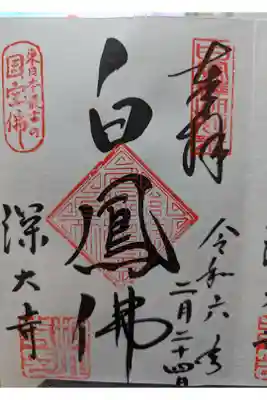 奉拝
令和六年
二月二十四日
白鳳佛
深大寺
東日本最古の
国宝佛